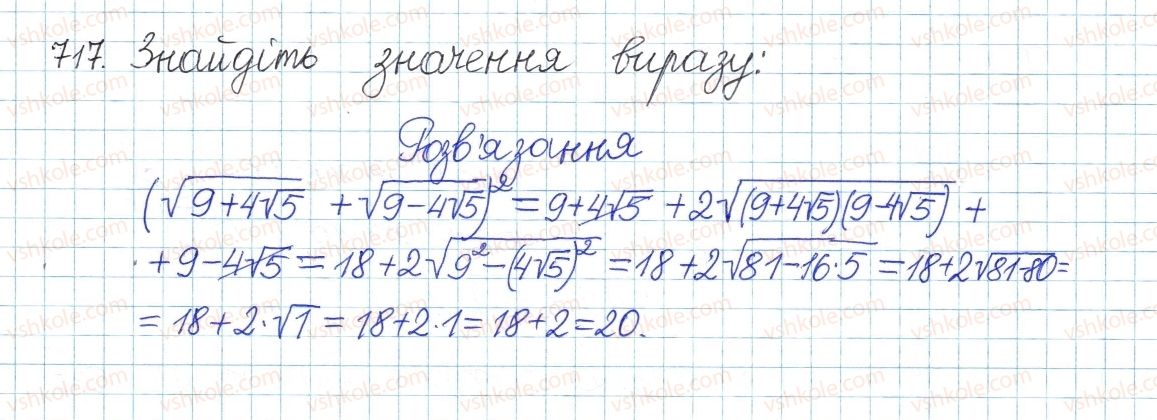 717. Знайдіть значення виразу:
Розв'язання
(√(9+4√5) + √(9-4√5))² = 9+4√5 + 2√((9+4√5)(9-4√5)) +
+ 9-4√5 = 18+2√(9²-(4√5)²) = 18+2√(81-16·5) = 18+2√(81-80) =
= 18+2·√1 = 18+2·1 = 18+2 = 20.